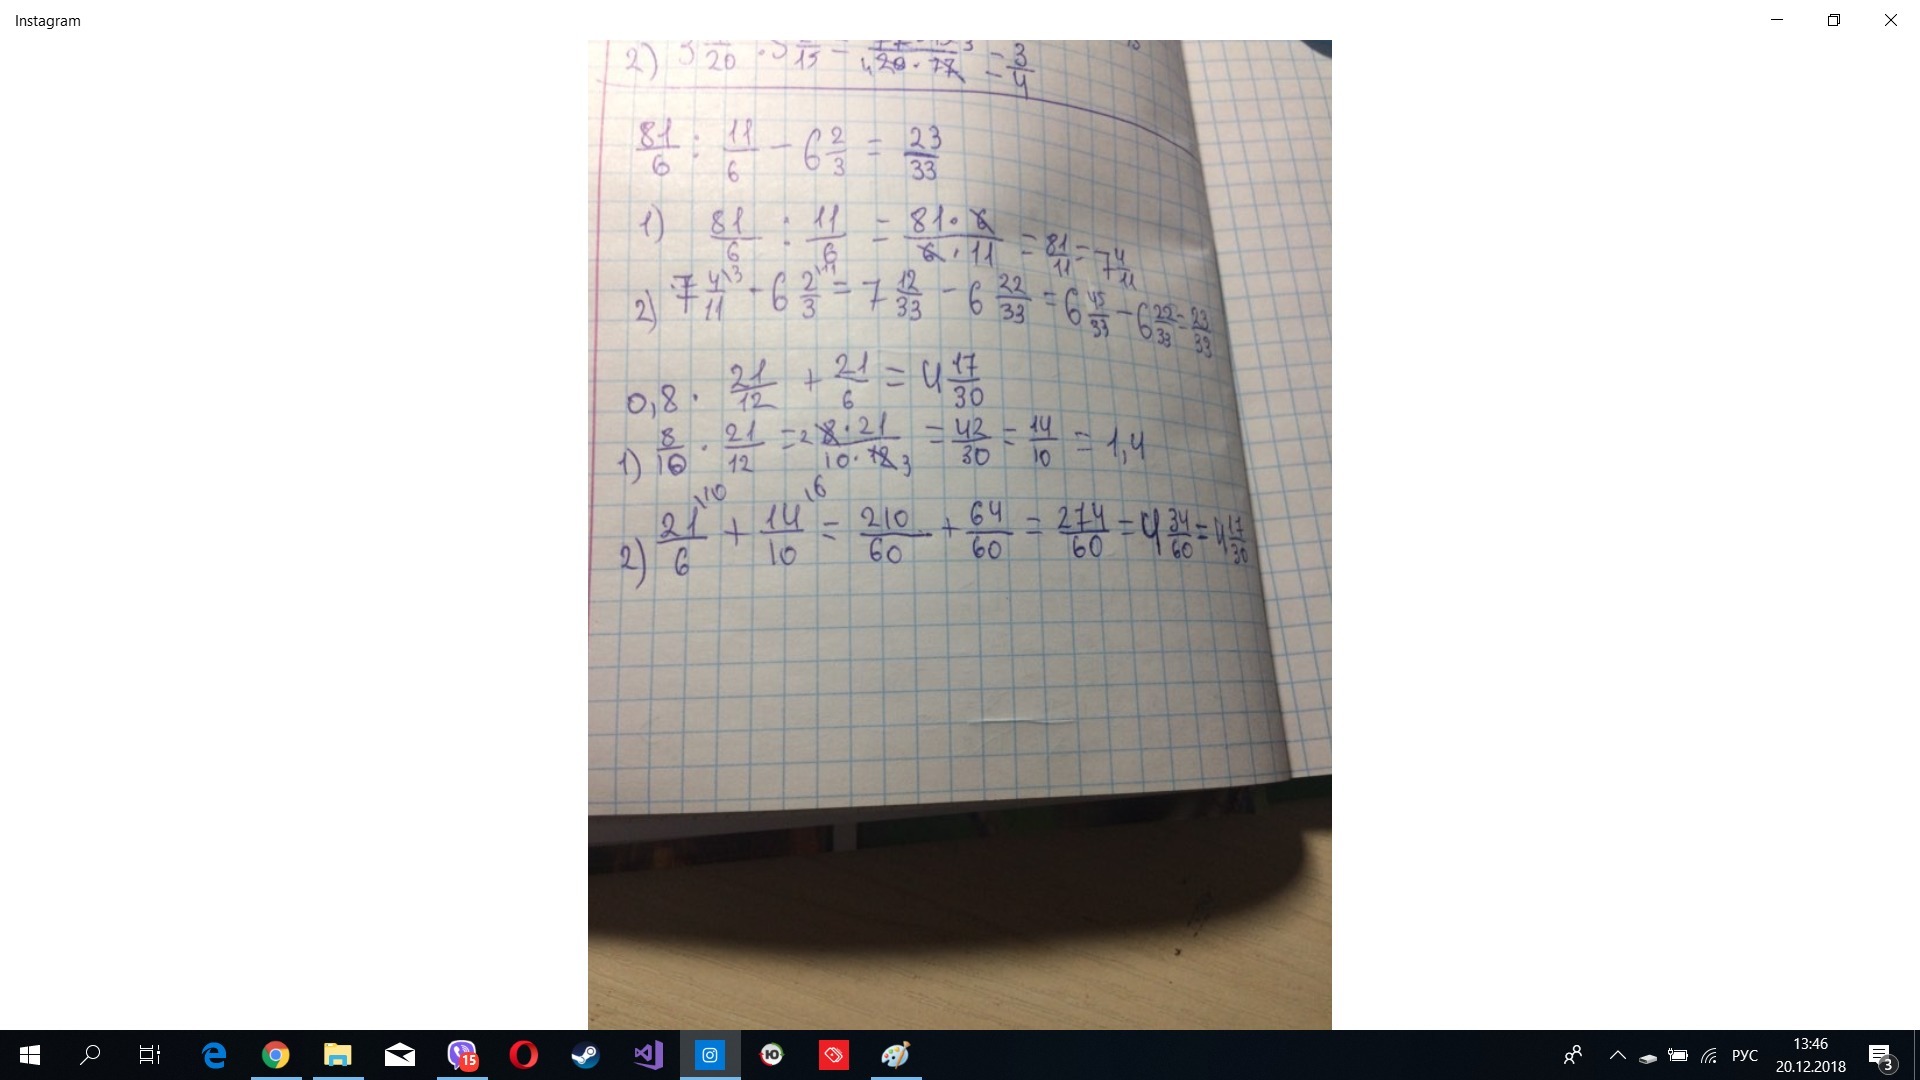 Instagram
2) 20 15 = 3 4 20 · 77 = 3/4
81/6 : 11/6 - 6 2/3 = 23/33
1) 81/6 : 11/6 = 81·6/6·11 = 81/11 = 7 4/11
2) 7 4/11 \3 - 6 2/3 \11 = 7 12/33 - 6 22/33 = 6 45/33 - 6 22/33 = 23/33
0,8 · 21/12 + 21/6 = 4 17/30
1) 8/10 · 21/12 = 2 8·21/10·12 3 = 42/30 = 14/10 = 1,4
2) 21/6 \10 + 14/10 \6 = 210/60 + 64/60 = 274/60 = 4 34/60 = 4 17/30
15
Ю
РУС
13:46
20.12.2018
3